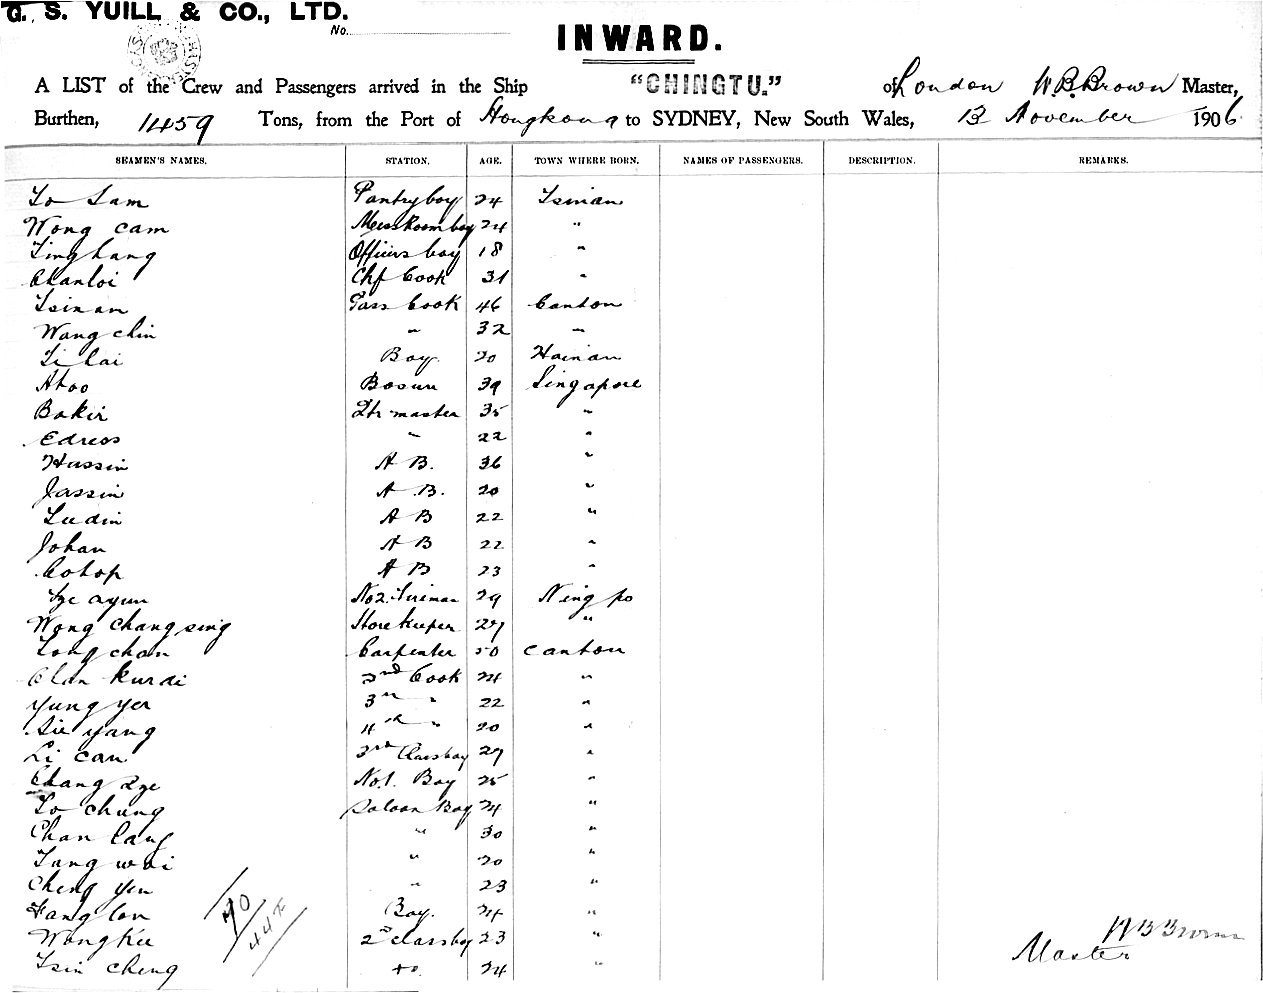 G. S. YUILL & CO., LTD.
No.
INWARD.
A LIST of the Crew and Passengers arrived in the Ship "CHINGTU." of London W. B. Brown Master,
Burthen, 1459 Tons, from the Port of Hongkong to SYDNEY, New South Wales, 13 November 1906
SEAMEN'S NAMES. STATION. AGE. TOWN WHERE BORN. NAMES OF PASSENGERS. DESCRIPTION. REMARKS.
Lo Sam Pantryboy 24 Tsinan
Wong cam Messroomboy 24 "
Officers boy 18 "
Chanloi Chf Cook 31 "
Tsinan Pass Cook 46 Canton
Wong chin " 32 "
Boy 20 Hainan
Ahoo Bosun 39 Singapore
Bakir Qtr master 35 "
Edreos " 22 "
Hassin A B. 36 "
Jassin A. B. 20 "
Ludin A B 22 "
Johan A B 22 "
A B 23 "
No 2. Fireman 29 Ningpo
Wong chang sing Storekeeper 27 "
Tong chan Carpenter 50 Canton
2nd Cook 24 "
Yung yer 3rd " 22 "
yang 4th " 20 "
Li can 3rd Classboy 27 "
Chang No1. Boy 25 "
Lo chung Saloon Boy 24 "
Chan " 30 "
Tang wai " 20 "
Cheng yen " 23 "
Boy. 24 "
2nd classboy 23 "
Tsin cheng do. 24 "
W B Brown
Master